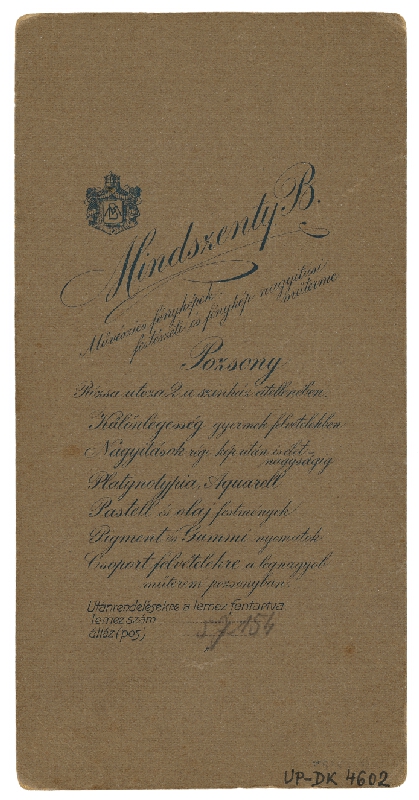 Mindszenty B.
Művészies fényképek
festészeti és fénykép nagyitási
műterme
Pozsony
Rózsa utcza 2. a szinház átellenében.
Különlegesség gyermek felvételekben
Nagyitások régi kép után életnagyságig
Platynotypia, Aquarell
Pastell és olaj festmények
Pigment és Gummi nyomatok
Csoport felvételekre a legnagyobb
műterem pozsonyban.
Utánrendelésekre a lemez fentartva
lemez szám
154
UP-DK 4602